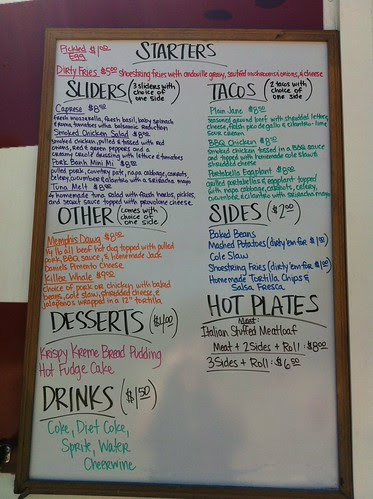 Pickled $1.00
Egg
STARTERS
Dirty Fries $5.00 shoestring fries with andouille gravy, sautéed mushrooms & onions, & cheese
SLIDERS (3 sliders with choice of one side)
Caprese $8.50
fresh mozzarella, fresh basil, baby spinach
& roma tomatoes with a balsamic reduction
Smoked Chicken Salad $8.50
smoked chicken, pulled & tossed with red
onions, red & green peppers and a
creamy creole dressing with lettuce & tomatoes
Pork Banh Mini Mi $8.50
pulled pork, country pate, napa cabbage, carrots,
celery, cucumber & cilantro with a
Tuna Melt $8.50
homemade tuna salad with fresh herbs, pickles,
and sauce topped with provolone cheese
OTHER (comes with choice of one side)
Memphis Dawg
all beef hot dog topped with pulled
pork, BBQ sauce, & homemade Jack
Daniels Pimento Cheese
Killer Whale
choice of pork or chicken with baked
beans, cole slaw, shredded cheese, &
jalapeños wrapped in a 12" tortilla
DESSERTS ($4.00)
Krispy Kreme Bread Pudding
Hot Fudge Cake
DRINKS ($1.50)
Coke, Diet Coke,
Sprite, Water
Cheerwine
TACOS (2 tacos with choice of one side)
Plain Jane $8.50
seasoned ground beef with shredded lettuce,
cheese, fresh pico de gallo & cilantro-lime sour cream
BBQ Chicken $8.50
smoked chicken tossed in a BBQ sauce
and topped with homemade cole slaw &
shredded cheese
Portobello Eggplant $8.50
grilled portobellos & eggplant topped
with napa cabbage, carrots, celery,
cucumber, & cilantro with sriracha mayo
SIDES ($2.00)
Baked Beans
Mashed Potatoes (dirty 'em for $1.50)
Cole Slaw
Shoestring Fries (dirty 'em for $1.50)
Homemade Tortilla Chips &
Salsa Fresca
HOT PLATES
Meat:
Italian Stuffed Meatloaf
Meat + 2 Sides + Roll : $8.00
3 Sides + Roll : $6.50